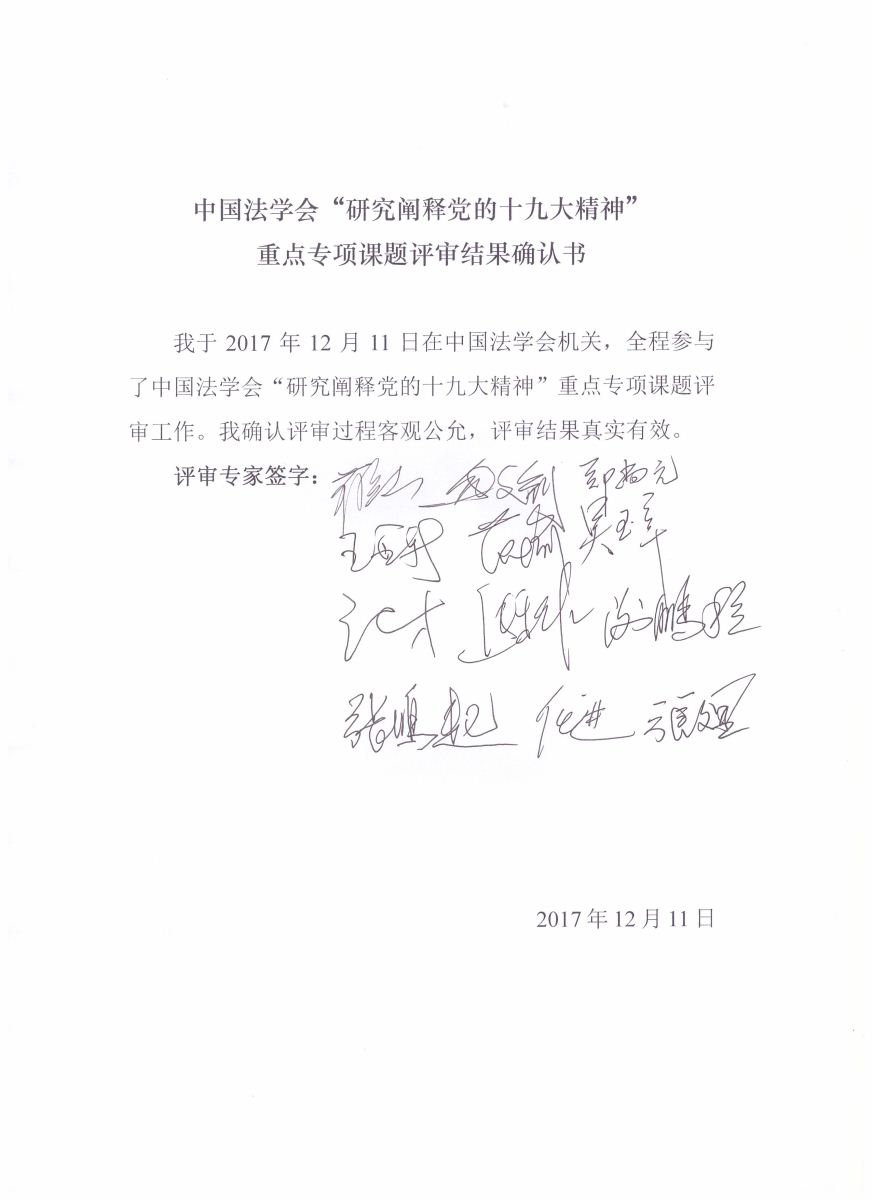 中国法学会“研究阐释党的十九大精神”
重点专项课题评审结果确认书
我于 2017 年 12 月 11 日在中国法学会机关，全程参与
了中国法学会“研究阐释党的十九大精神”重点专项课题评
审工作。我确认评审过程客观公允，评审结果真实有效。
评审专家签字：郑尚元
吴玉章
谢鹏程
任进
2017 年 12 月 11 日